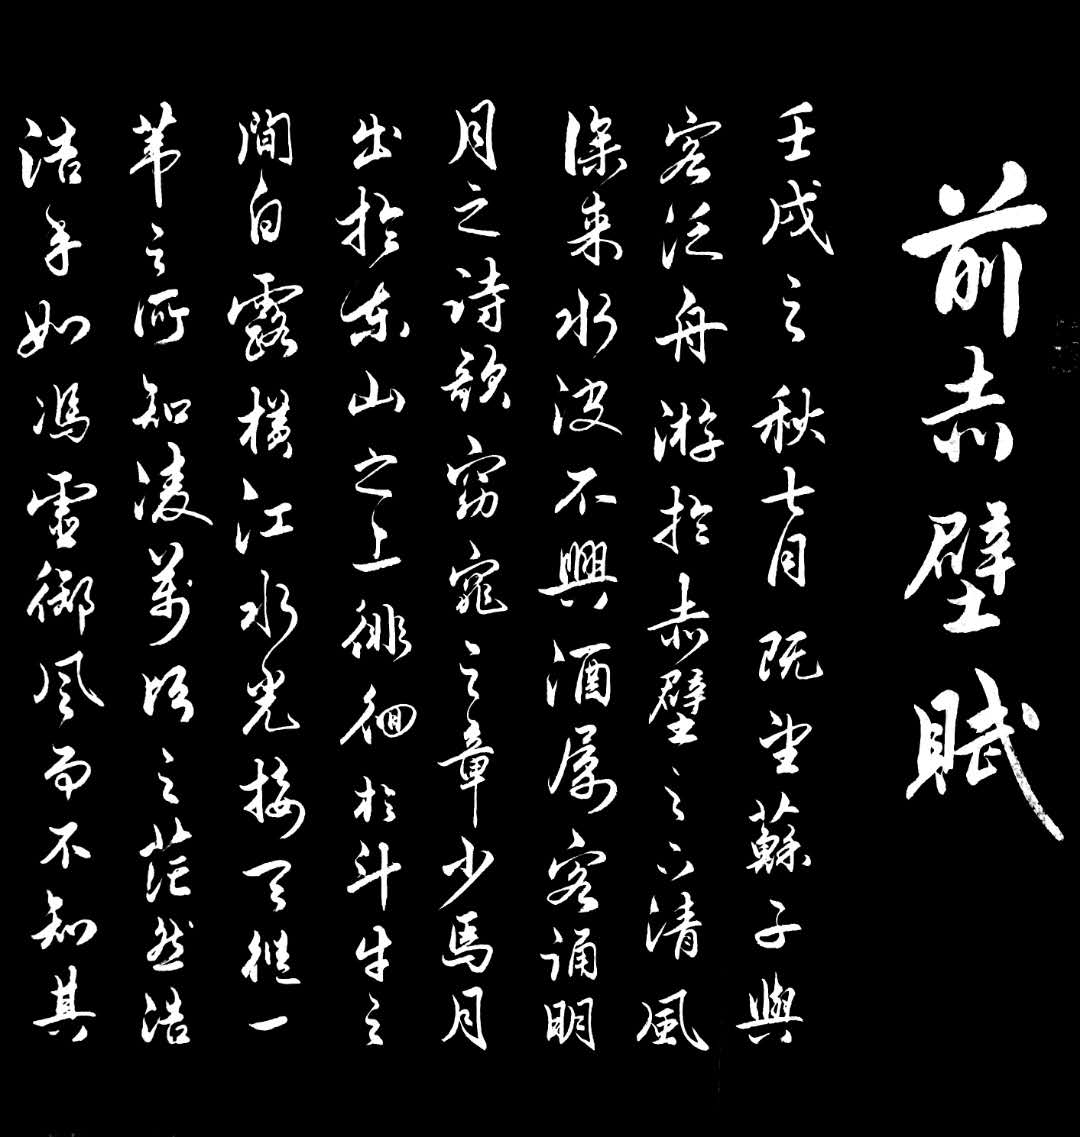 前赤壁賦
壬戌之秋七月既望蘇子與
客泛舟游於赤壁之下清風
徐来水波不興酒属客誦明
月之詩歌窈窕之章少焉月
出於東山之上徘徊於斗牛之
間白露橫江水光接天縱一
葦之所知凌萬頃之茫然浩
浩乎如馮虛御風而不知其